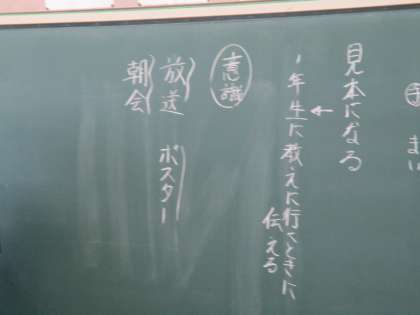 見本になる
1年生に教えに行くときに
伝える
意識
放送
ポスター
朝会